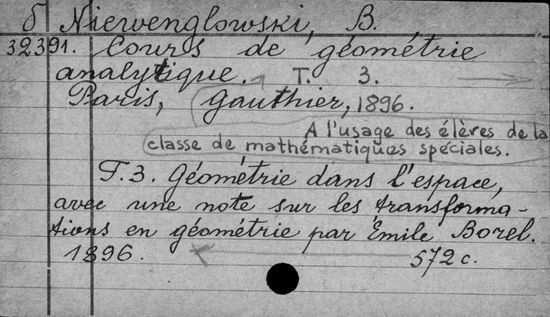 б Niewenglowski, B.
32391. Cours de géométrie
analytique. T. 3.
Paris, Gauthier, 1896.
A l'usage des élères de la
classe de mathématiques spéciales.
T. 3. Géométrie dans l'espace,
avec une note sur les transforma-
tions en géométrie par Émile Borel.
1896. 572 c.